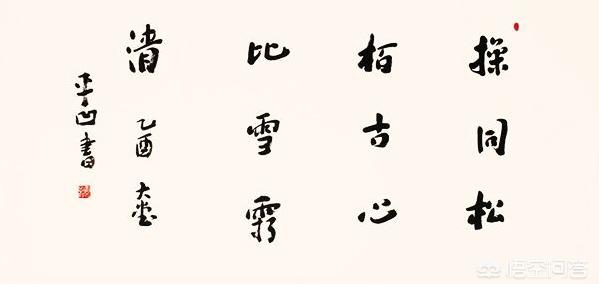 操同松
柏古心
比雪霜
清 乙酉 大堂
平凹书
悟空问答